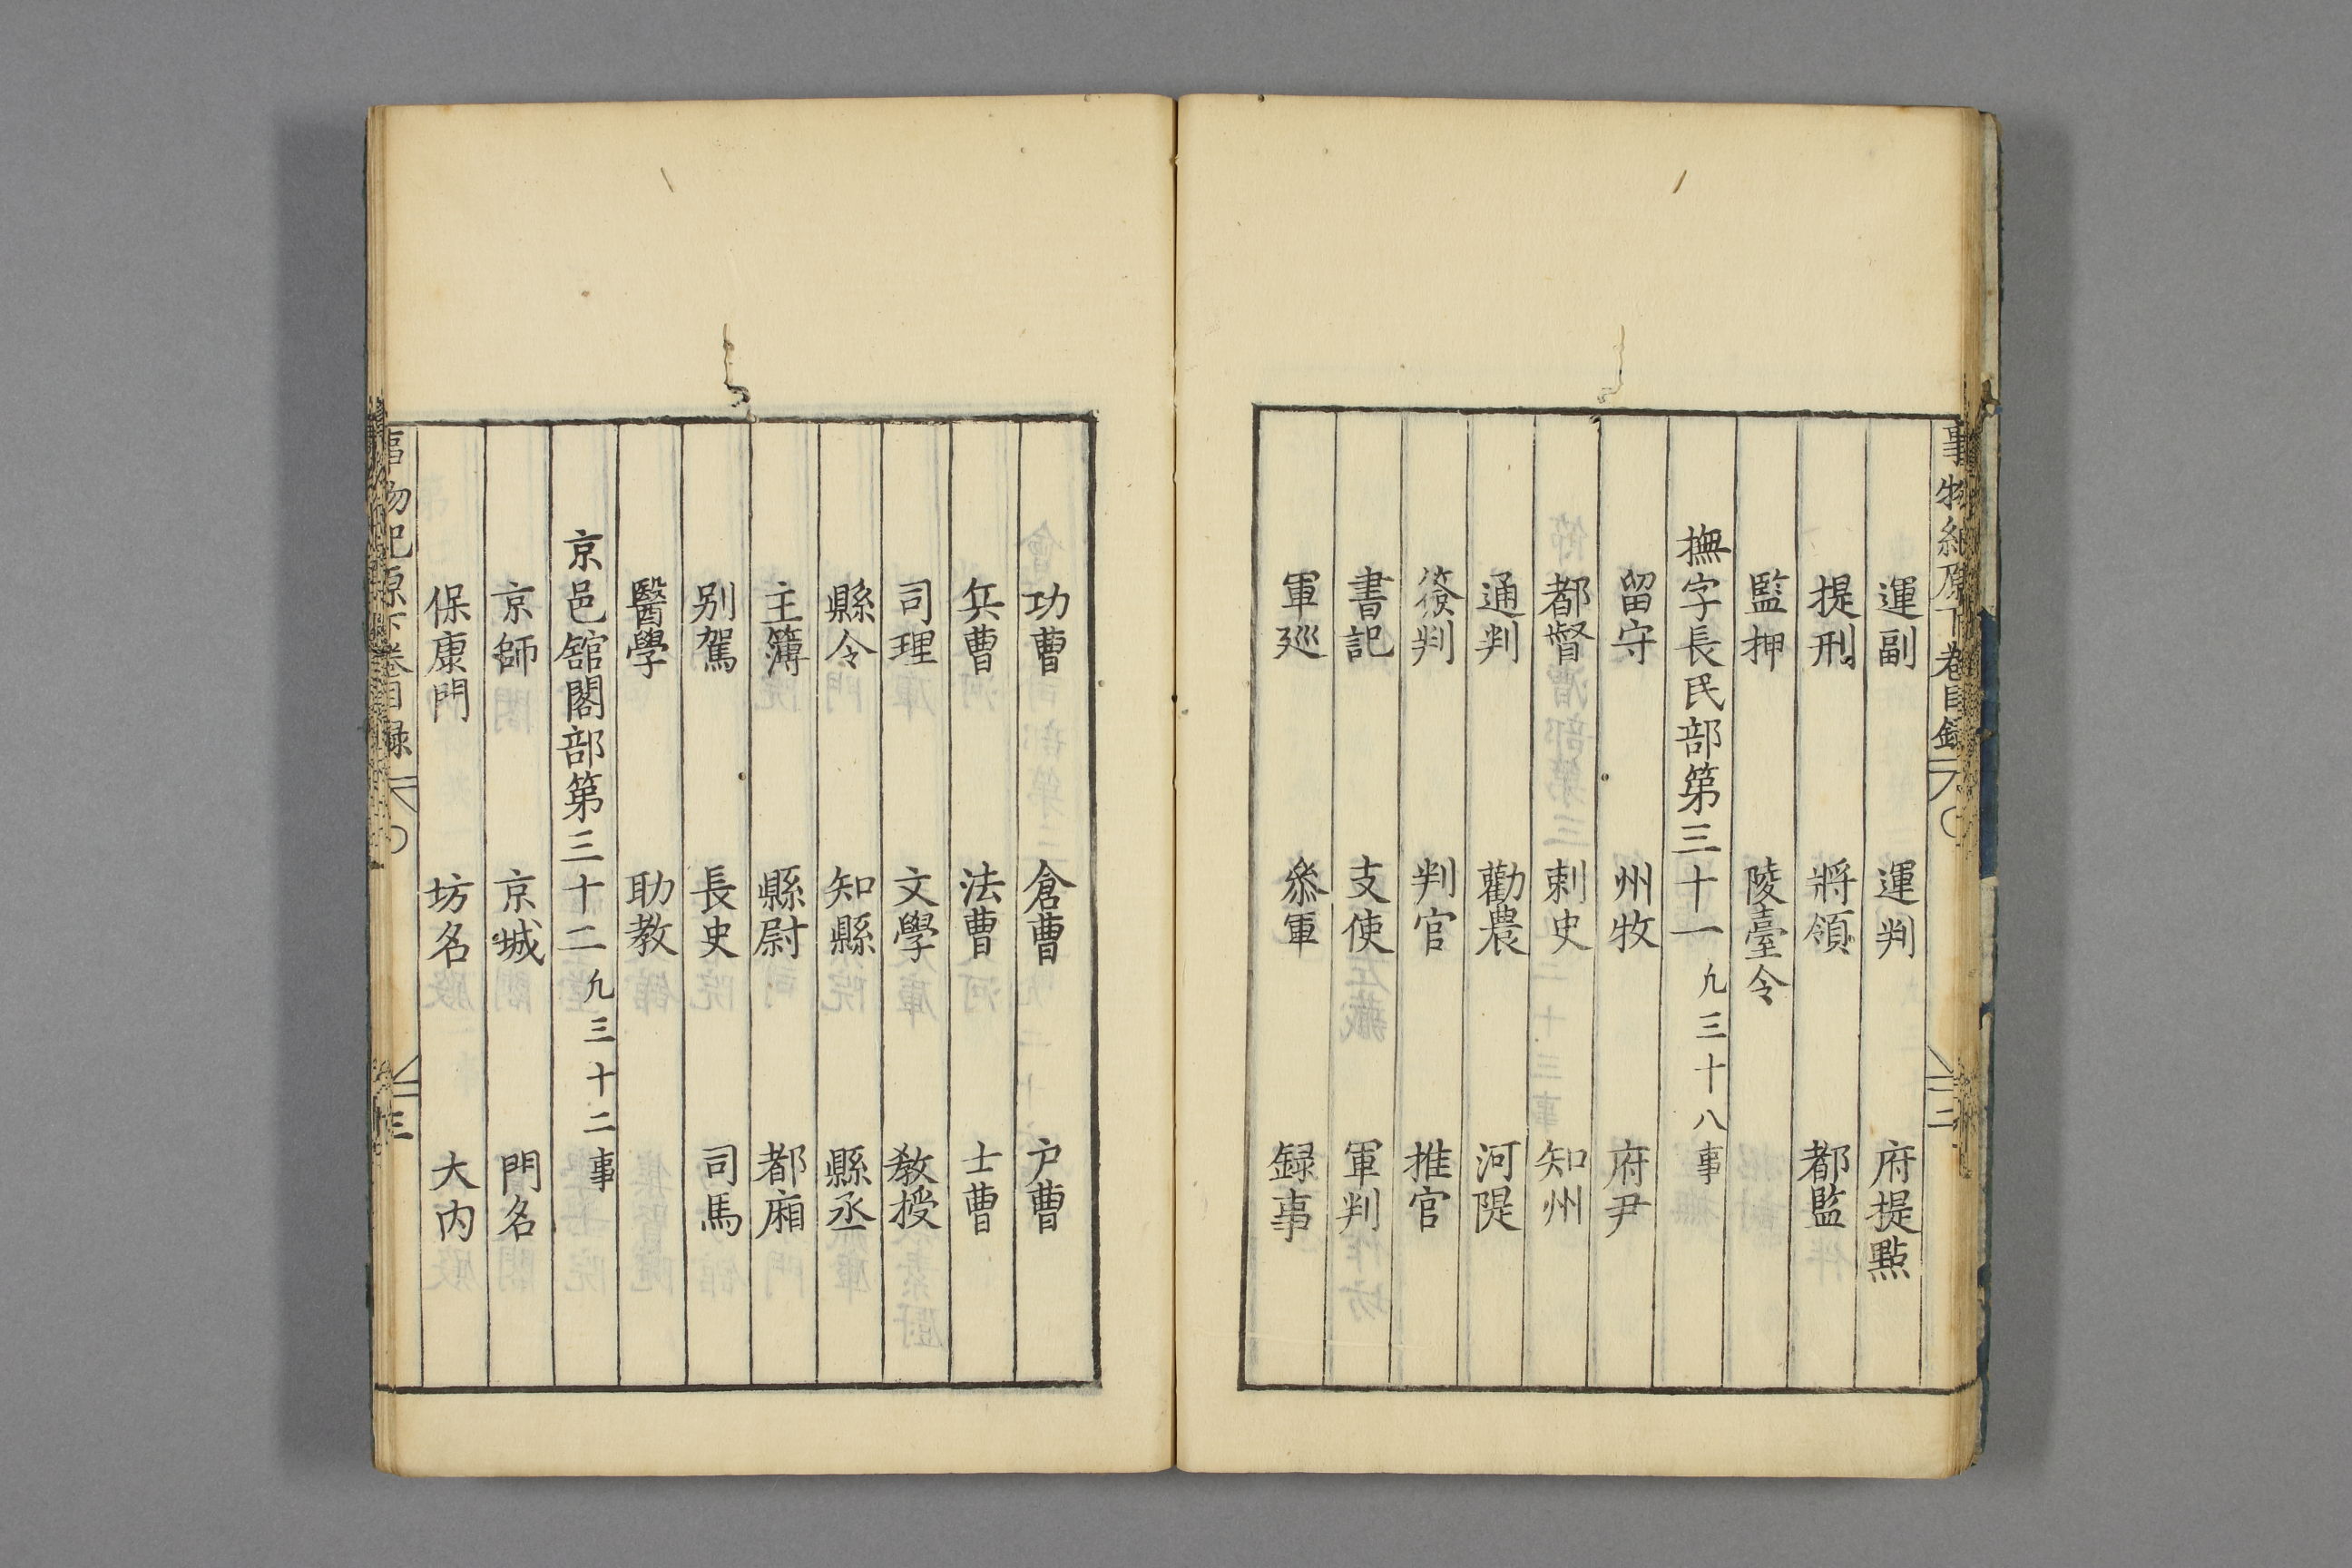 事物紀原下卷目録
二
運副 運判 府提㸃
提刑 將領 都監
監押 陵臺令
撫字長民部第三十一 凡三十八事
留守 州牧 府尹
都督 刺史 知州
通判 勸農 河隄
簽判 判官 推官
書記 支使 軍判
軍廵 叅軍 録事
功曹 倉曹 户曹
兵曹 法曹 士曹
司理 文學 教授
縣令 知縣 縣丞
主簿 縣尉 都廂
别駕 長史 司馬
醫學 助教
京邑舘閣部第三十二 凡三十二事
京師 京城 門名
保康門 坊名 大内
事物紀原下卷目録
三